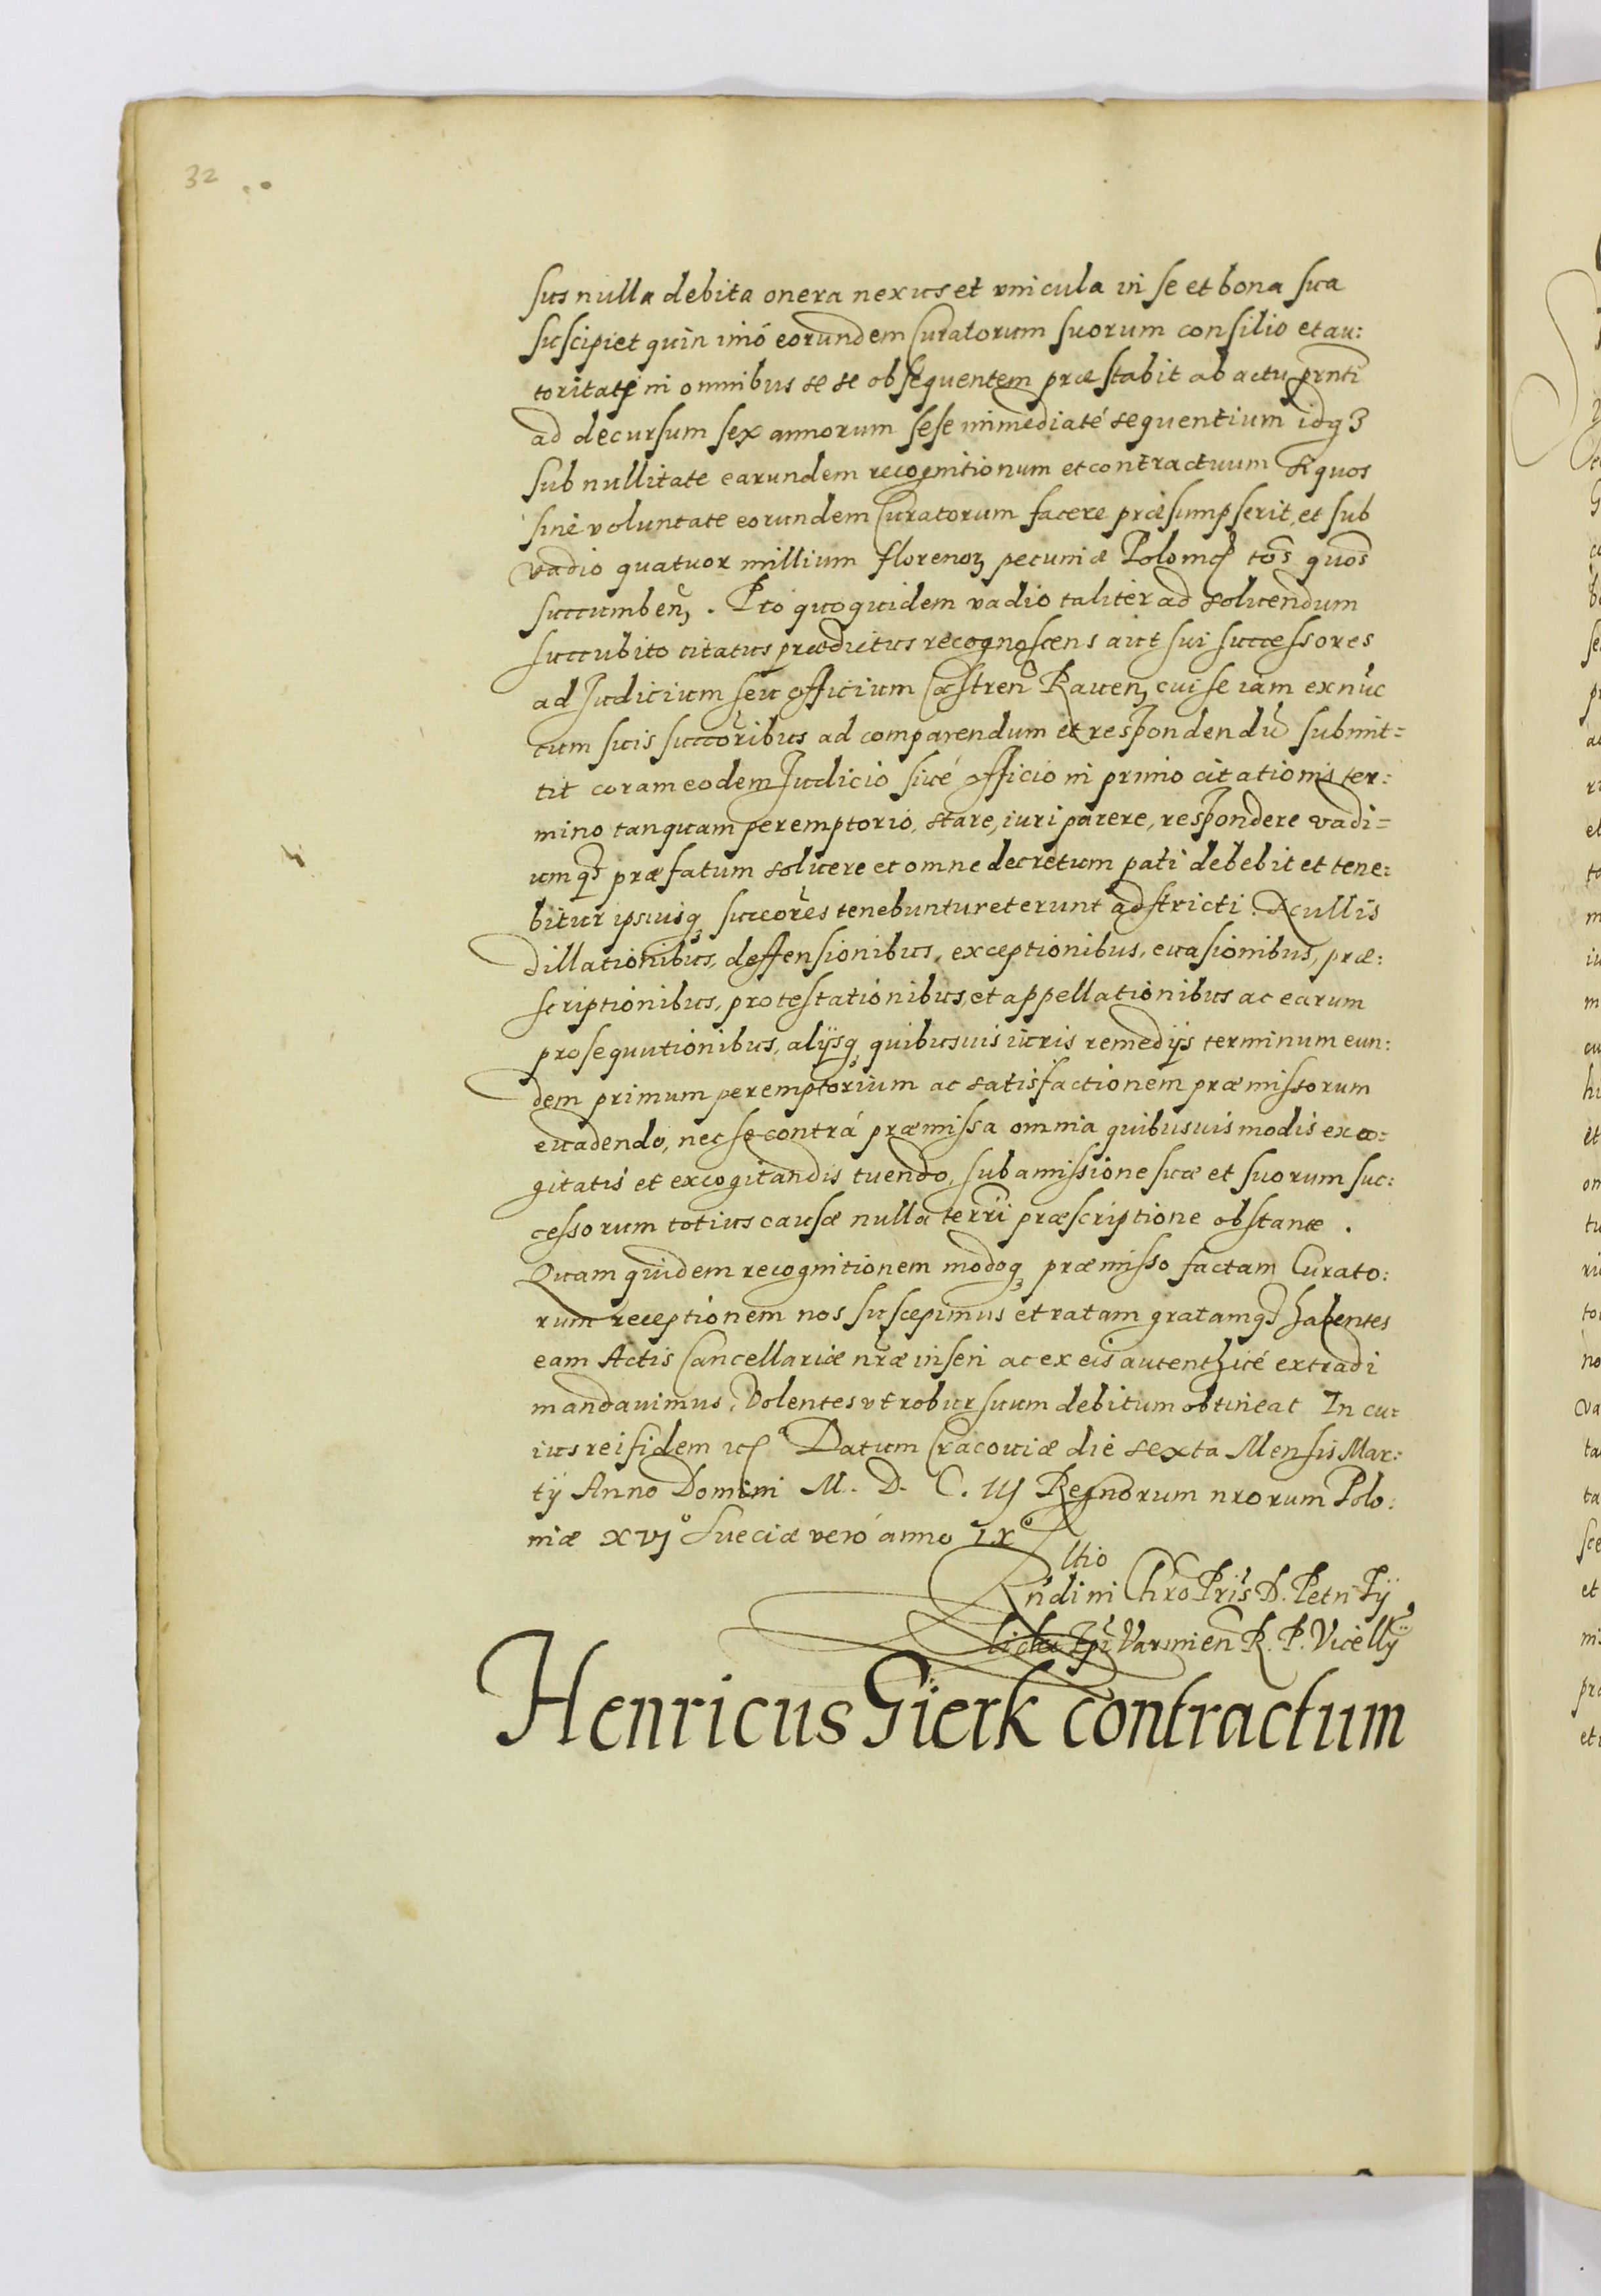 32
sus nulla debita onera nexus et vincula in se et bona sua
suscipiet quin imó eorundem Curatorum suorum consilio et au:
toritati in omnibus se se obsequentem præstabit ab actu prnti
ad decursum sex annorum sese immediaté sequentium idqȝ
sub nullitate earundem recognitionum et contractuum si quos
sine voluntate eorundem Curatorum facere præsumpserit, et sub
vadio quatuor millium florenoꝝ pecuniæ Polonica tos quos
succumbenꝫ. Pro quo quidem vadio taliter ad solvendum
succubito citatus prædictus recognoscens aut sui successores
ad Judicium seu officium Castren Ravenꝫ cui se iam ex nuc
cum suis succoribus ad comparendum et respondendū submit=
tit coram eodem Judicio sivé officio in primo citationis ter:
mino tanquam peremptorio, stare, iuri parere, respondere vadi=
umqȝ præfatum solvere et omne decretum pati debebit et tene:
bitur ipsiusqȝ succores tenebuntur et erunt adstricti. Nullis
dillationibus, deffensionibus, exceptionibus, evasionibus, præ:
scriptionibus, protestationibus, et appellationibus ac earum
prosequutionibus, alijsqȝ quibusuis iuris remedijs terminum eun:
dem primum peremptorium ac satisfactionem præmissorum
evadendo, nec se contrá præmissa omnia quibusuis modis exco=
gitatis et excogitandis tuendo, sub amissione suæ et suorum suc:
cessorum totius causæ nulla terri præscriptione obstante.
Quam quidem recognitionem modoqȝ præmisso factam Curato:
rum receptionem nos suscepimus et ratam gratamqȝ habentes
eam Actis Cancellariæ nræ inseri ac ex eis autenthicé extradi
mandavimus, Volentes vt robur suum debitum obtineat In cu:
ius rei fidem Datum Cracoviæ die sexta Mensis Mar:
tij Anno Domini M. D. C. iij Regnorum nrorum Polo:
niæ xvj° Sueciæ veró anno ix°
ltio
Rndi in Chro Pris D. Petri Ty
licki Epi Varmien R. P. Vicellÿ
Henricus Gierk contractum